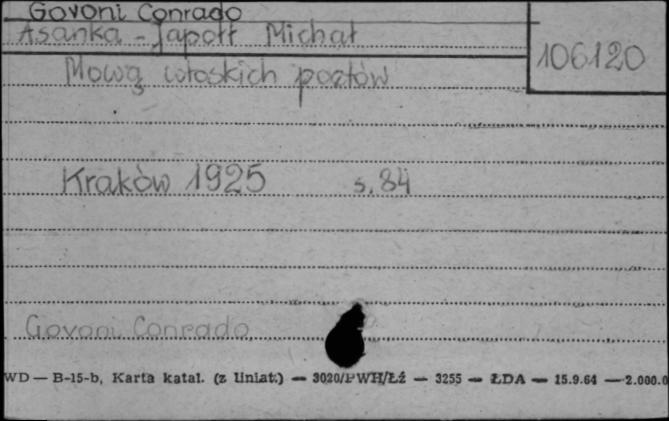 Govoni Conrado
Asanka - Japołł Michał
106120
Mową włoskich poetów
Kraków 1925 s. 84
Govoni Conrado
WD — B-15-b, Karta katal. (z liniat.) — 3020/PWH/Łź — 3255 — ŁDA — 15.9.64 — 2.000.0